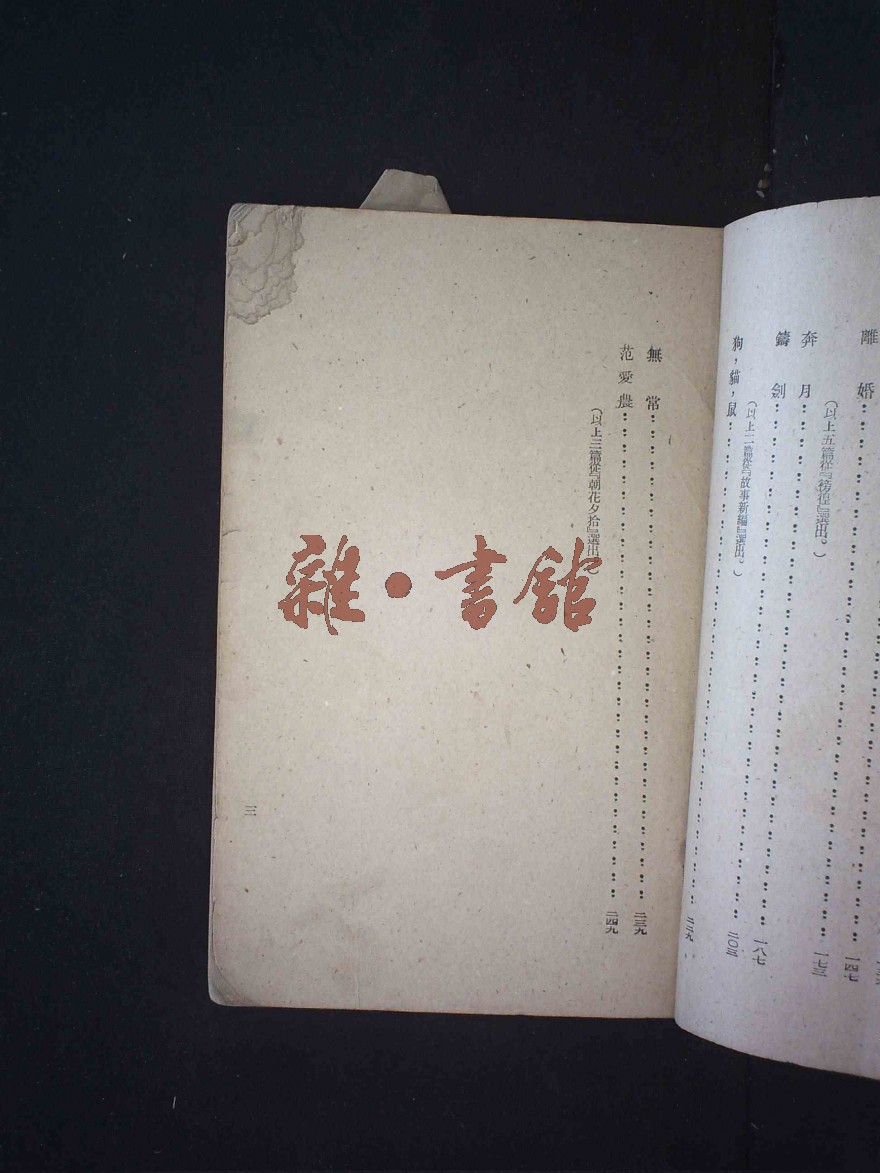 一四七
離婚……一七三
(以上五篇從『徬徨』選出。)
奔月……一八七
鑄劍……二〇三
(以上二篇從『故事新編』選出。)
狗，貓，鼠……二二九
無常……二三九
范愛農……二四九
(以上三篇從『朝花夕拾』選出。)
三
雜·書館